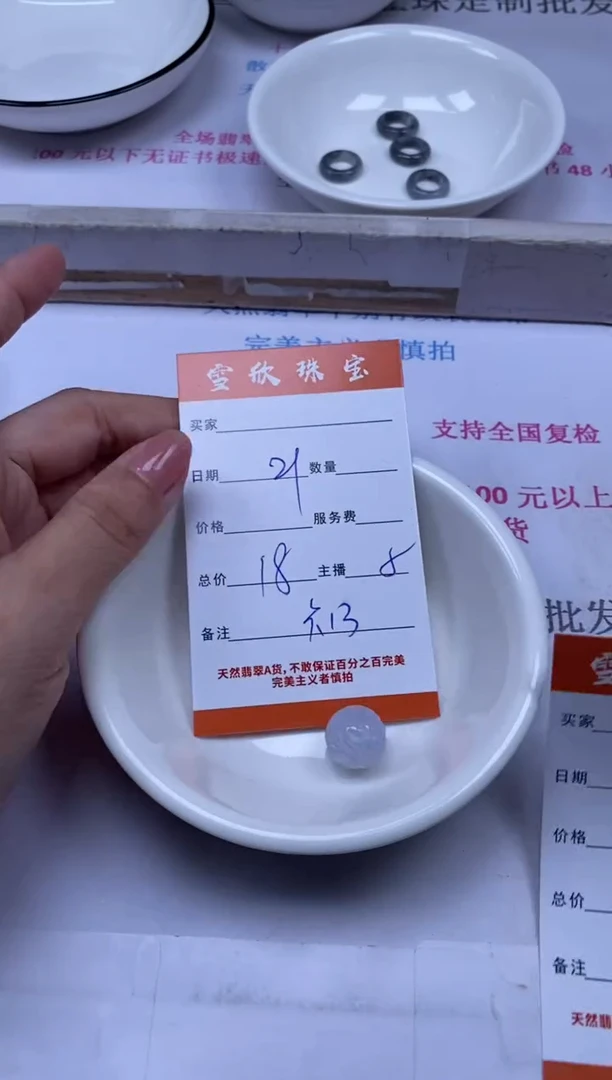 珠定制批发
全场翡翠
00 元以下无证书极速
检
书 48 小
完美主义 慎拍
支持全国复检
00 元以上
货
批发
雪欣珠宝
买家
日期 21 数量
价格 服务费
总价 18 主播 8
备注 13
天然翡翠A货,不敢保证百分之百完美
完美主义者慎拍
雪
买家
日期
价格
总价
备注
天然翡